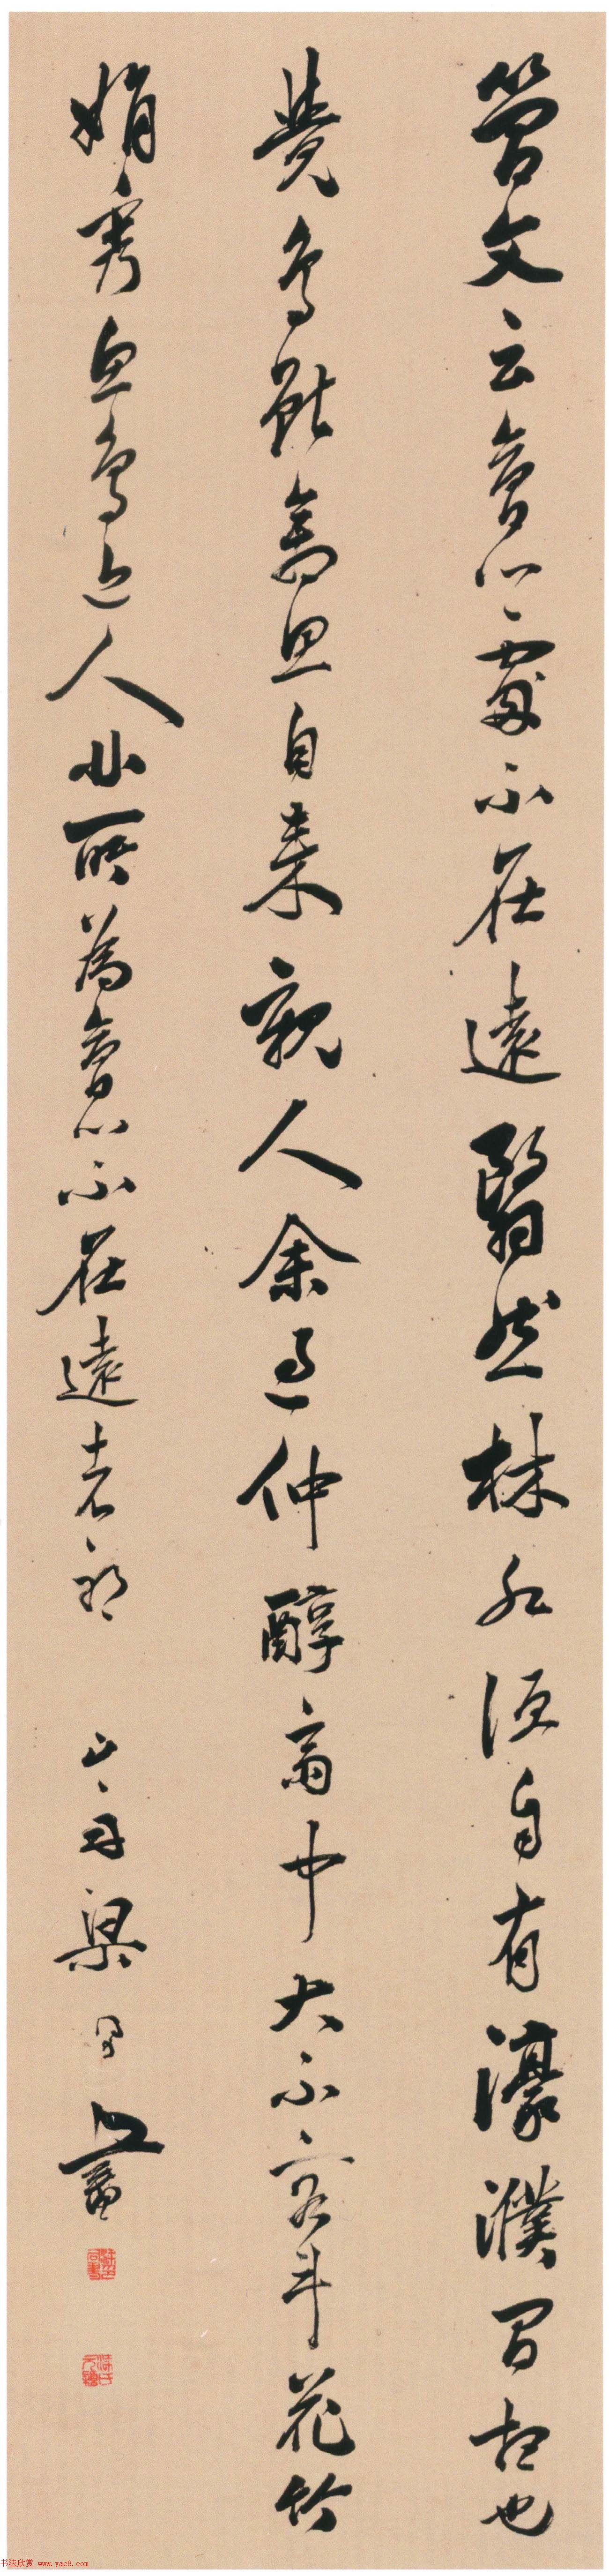 簡文云會心處不在遠翳然林水便自有濠濮間想也
覺鳥獸禽魚自來親人余過仲醇齋中大不容斗花竹
娟秀魚鳥近人此所為會心不在遠者邪 山舟梁同書
书法欣赏 www.yac8.com